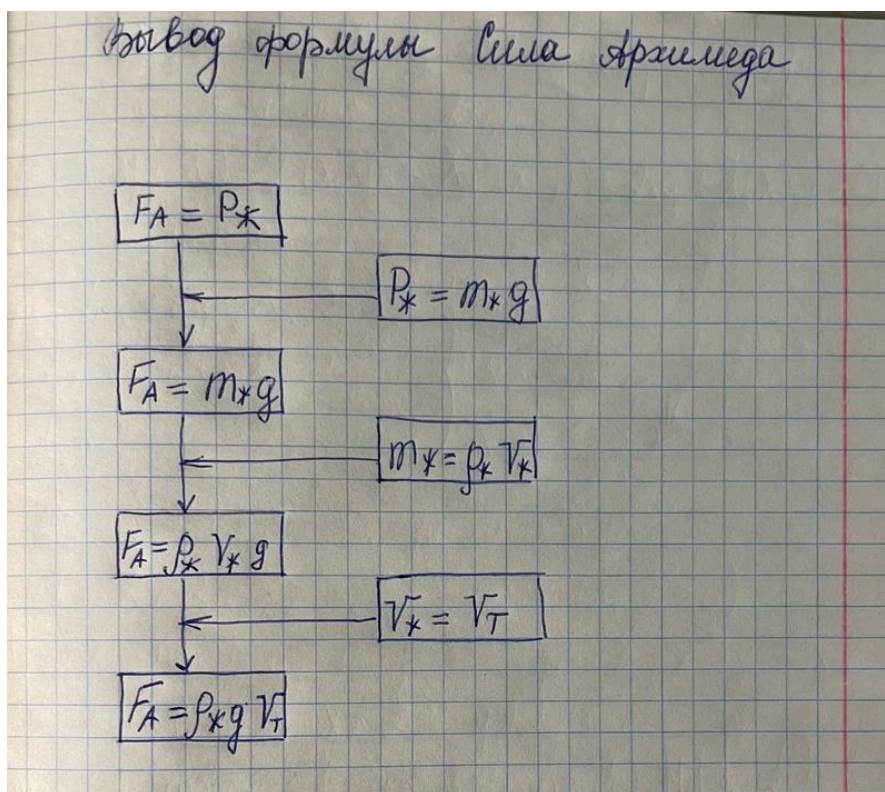 Вывод формулы Сила Архимеда
F_A = P_ж
P_ж = m_ж g
F_A = m_ж g
m_ж = ρ_ж V_ж
F_A = ρ_ж V_ж g
V_ж = V_т
F_A = ρ_ж g V_т